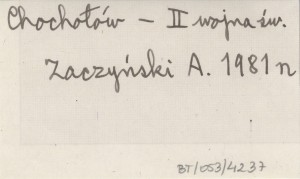 Chochołów – II wojna św.
Zaczyński A. 1981 n
BT/053/4237